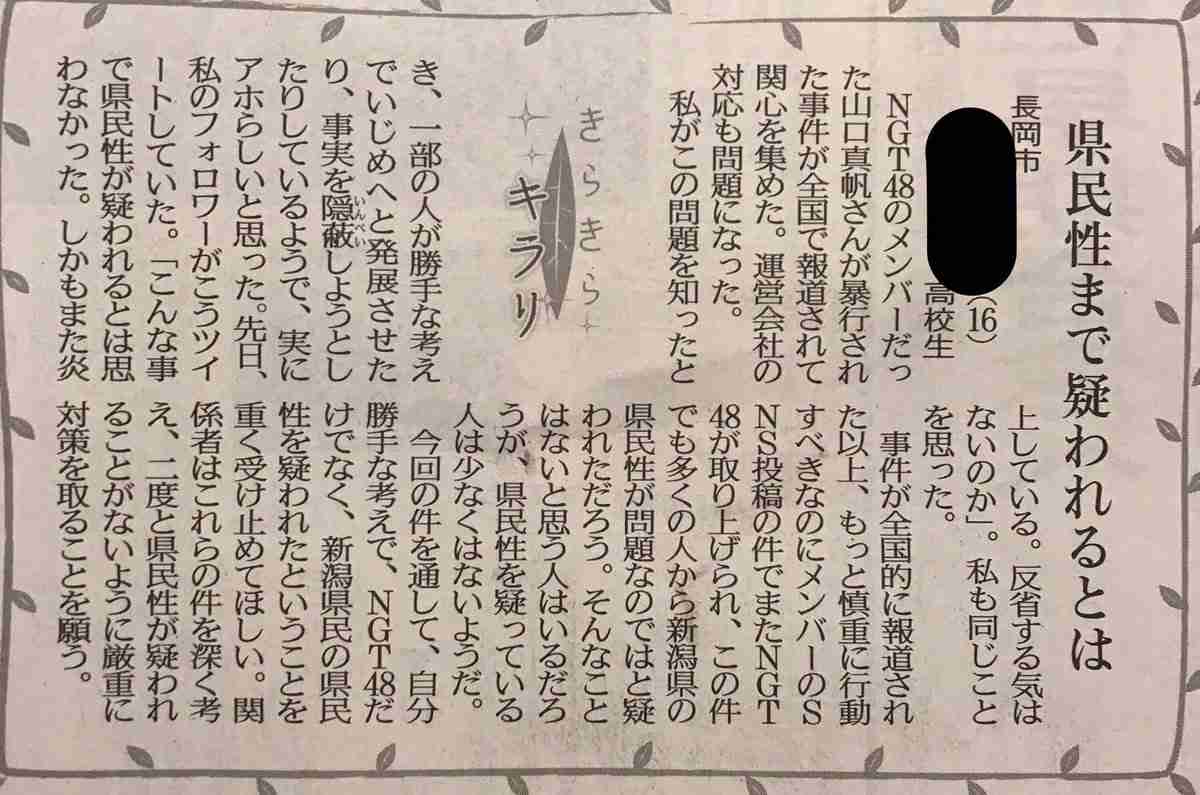 県民性まで疑われるとは
長岡市
（16）
高校生
NGT48のメンバーだっ
た山口真帆さんが暴行され
た事件が全国で報道されて
関心を集めた。運営会社の
対応も問題になった。
私がこの問題を知ったと
きらきら
キラリ
き、一部の人が勝手な考え
でいじめへと発展させた
り、事実を隠蔽しようとし
いんぺい
たりしているようで、実に
アホらしいと思った。先日、
私のフォロワーがこうツイ
ートしていた。「こんな事
で県民性が疑われるとは思
わなかった。しかもまた炎
上している。反省する気は
ないのか」。私も同じこと
を思った。
事件が全国的に報道され
た以上、もっと慎重に行動
すべきなのにメンバーのS
NS投稿の件でまたNGT
48が取り上げられ、この件
でも多くの人から新潟県の
県民性が問題なのではと疑
われただろう。そんなこと
はないと思う人はいるだろ
うが、県民性を疑っている
人は少なくはないようだ。
今回の件を通して、自分
勝手な考えで、NGT48だ
けでなく、新潟県民の県民
性を疑われたということを
重く受け止めてほしい。関
係者はこれらの件を深く考
え、二度と県民性が疑われ
ることがないように厳重に
対策を取ることを願う。